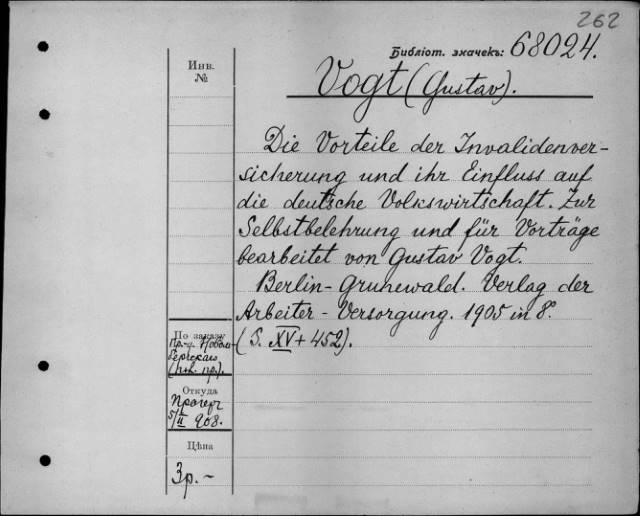 262
Библіот. значекъ: 68024.
Инв.
№
Vogt (Gustav).
Die Vorteile der Invalidenver-
sicherung und ihr Einfluss auf
die deutsche Volkswirtschaft. Zur
Selbstbelehrung und für Vorträge
bearbeitet von Gustav Vogt.
Berlin-Grunewald. Verlag der
Arbeiter-Versorgung. 1905 in 8°.
(S. XV + 452).
По заказу
Откуда
5/II 908.
Цѣна
3р.-